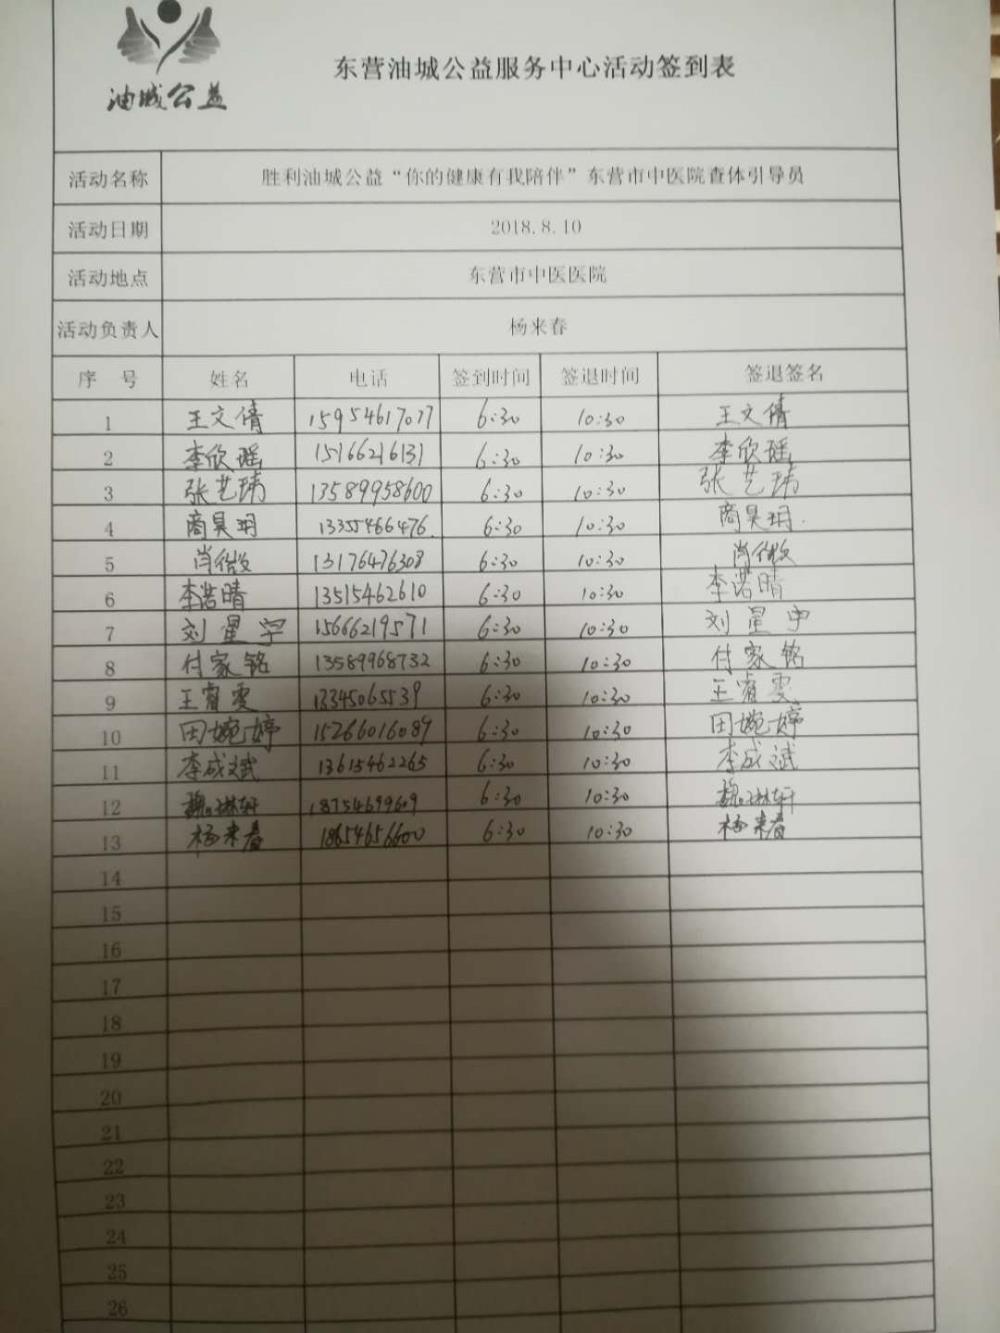 油城公益
东营油城公益服务中心活动签到表
活动名称 胜利油城公益“你的健康有我陪伴”东营市中医院查体引导员
活动日期 2018.8.10
活动地点 东营市中医医院
活动负责人 杨来春
序 号 姓名 电话 签到时间 签退时间 签退签名
1 王文倩 15954617077 6:30 10:30 王文倩
2 李欣瑶 15166216131 6:30 10:30 李欣瑶
3 张艺玮 13589958600 6:30 10:30 张艺玮
4 商昊玥 13355466476. 6:30 10:30 商昊玥.
5 肖微 13176476308 6:30 10:30 肖微
6 李诺晴 13515462610 6:30 10:30 李诺晴
7 刘星宇 15666219571 6:30 10:30 刘星宇
8 付家铭 13589968732 6:30 10:30 付家铭
9 王睿雯 13345065539 6:30 10:30 王睿雯
10 田婉婷 15266016089 6:30 10:30 田婉婷
11 李成斌 13615462265 6:30 10:30 李成斌
12 魏琳轩 18754699609 6:30 10:30 魏琳轩
13 杨来春 18654656600 6:30 10:30 杨来春
14
15
16
17
18
19
20
21
22
23
24
25
26